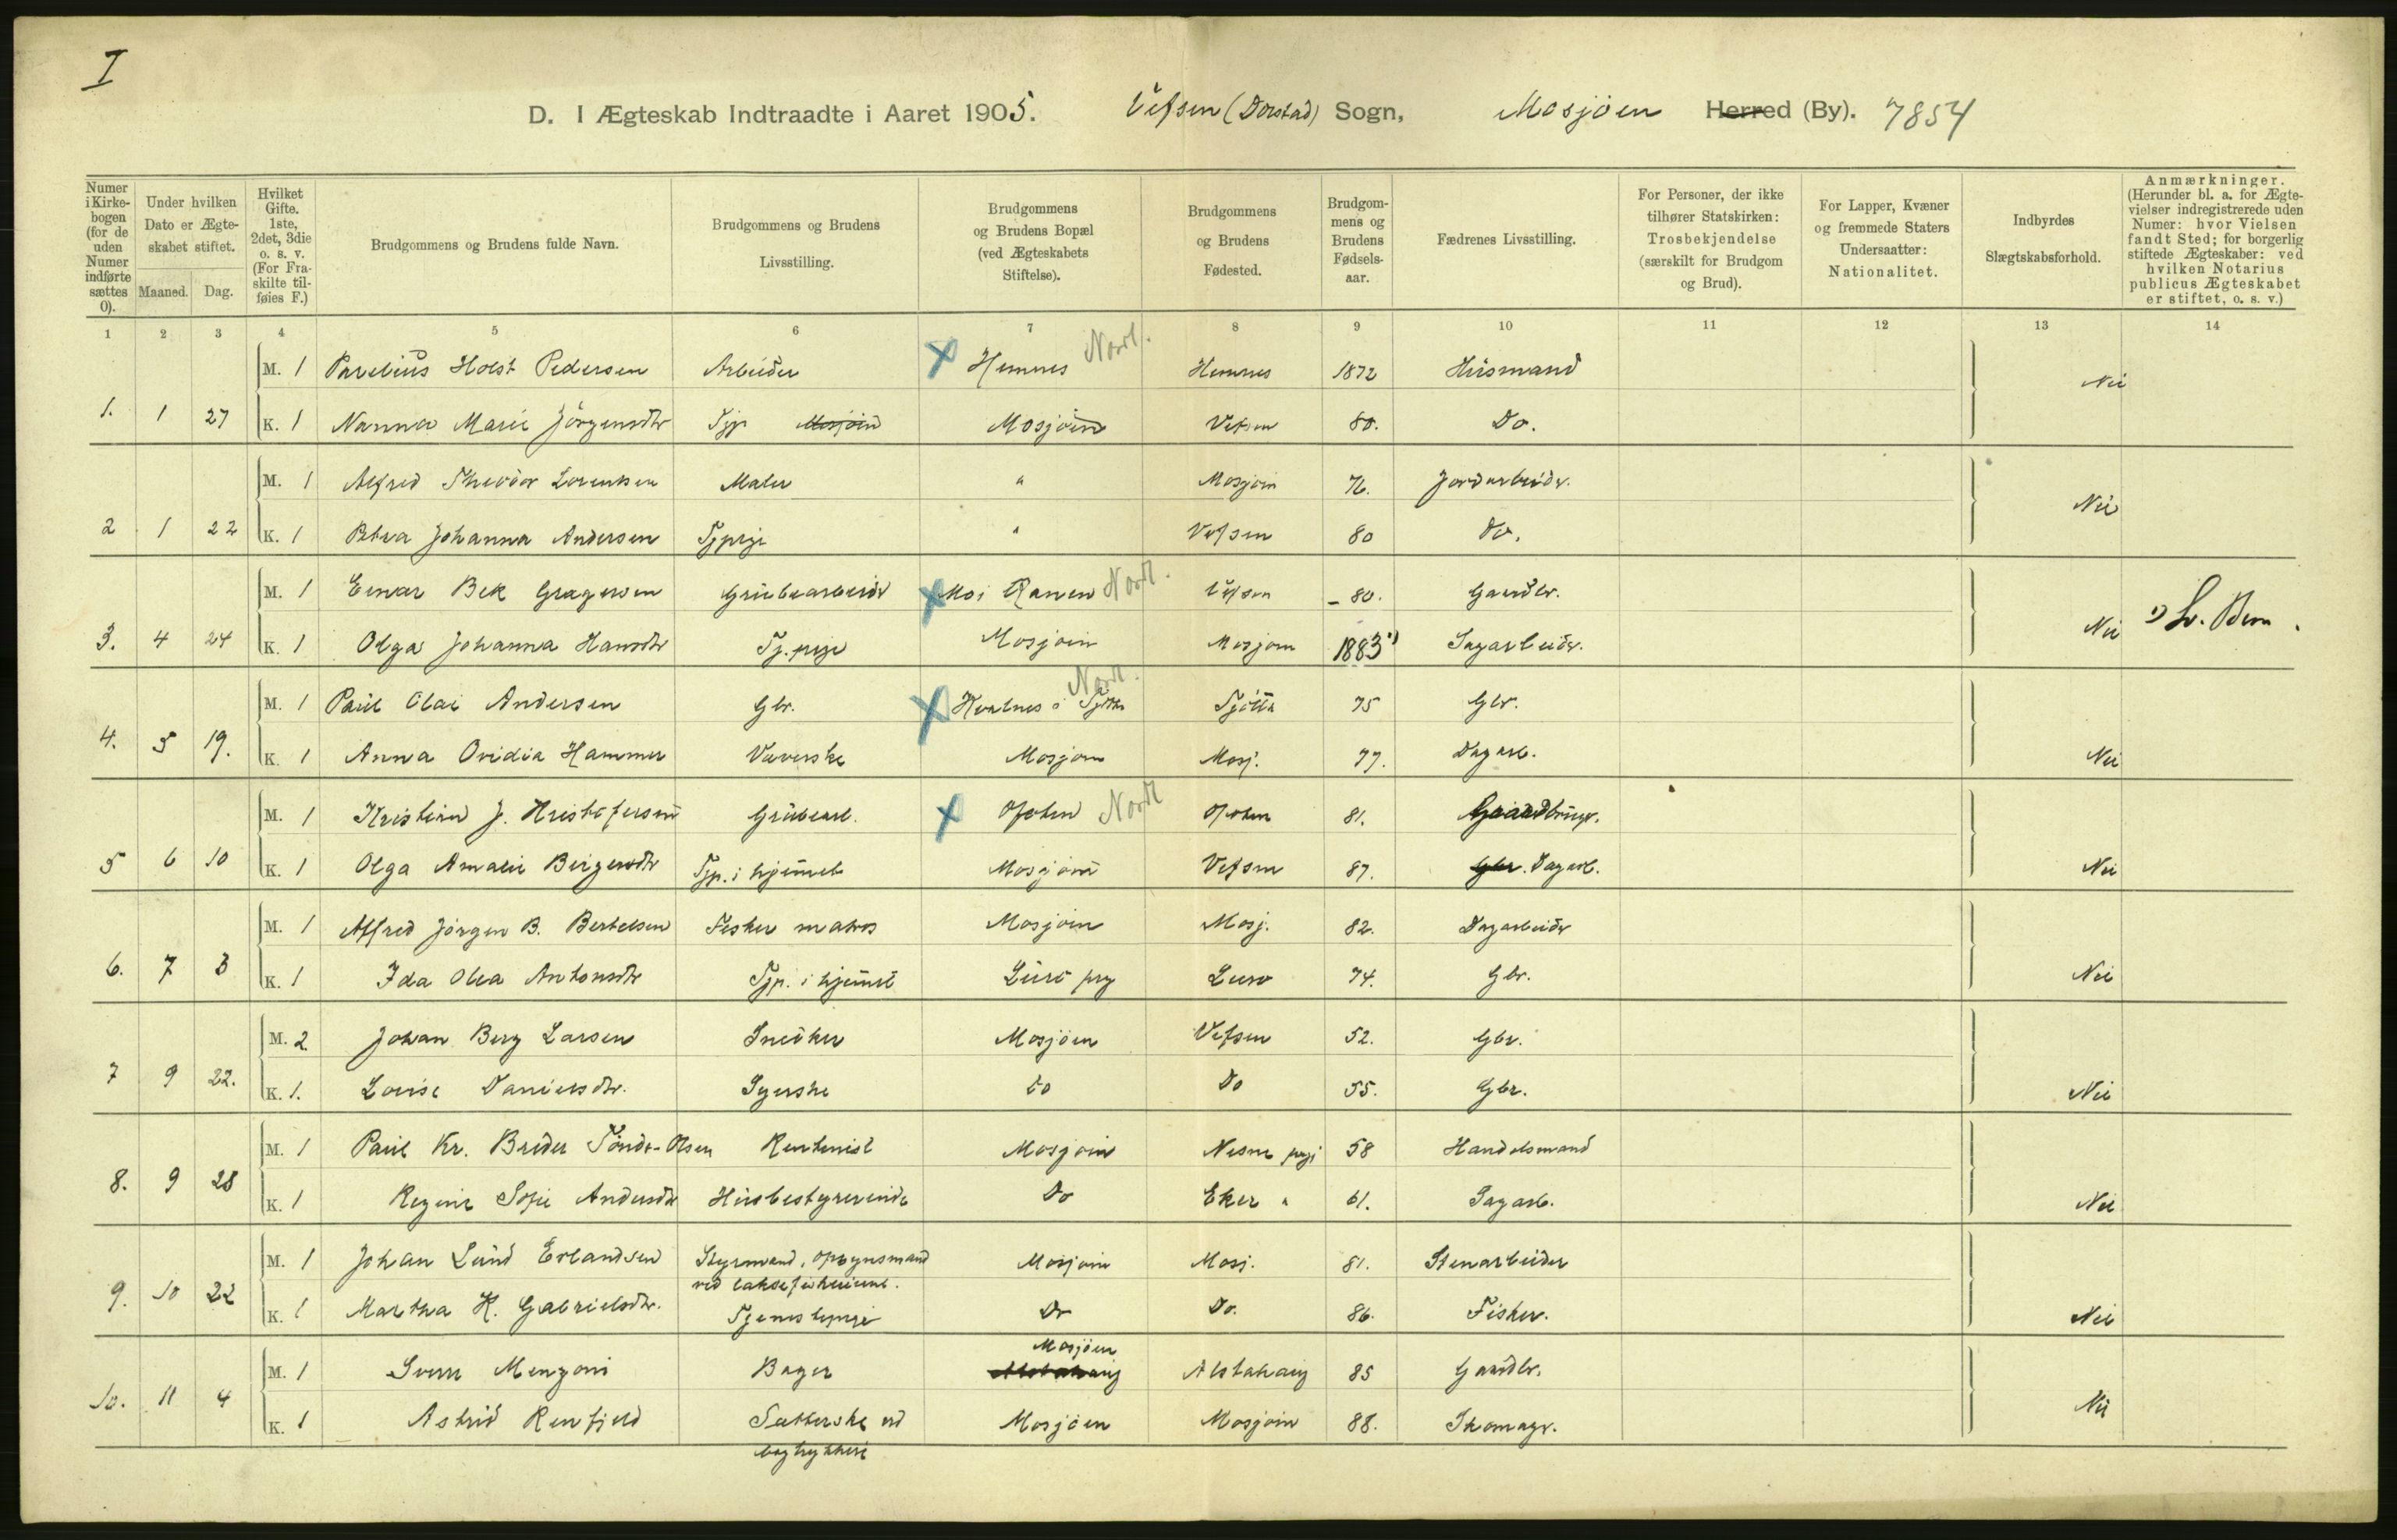 I
D. I Ægteskab Indtraadte i Aaret 1905. Vefsen (Dorstad) Sogn, Mosjöen Herred (By). 7854
Numer i Kirkebogen (for de uden Numer indførte sættes 0).
Under hvilken Dato er Ægteskabet stiftet.
Maaned. Dag.
Hvilket Gifte. 1ste, 2det, 3die o. s. v. (For Fraskilte tilføies F.)
Brudgommens og Brudens fulde Navn.
Brudgommens og Brudens Livsstilling.
Brudgommens og Brudens Bopæl (ved Ægteskabets Stiftelse).
Brudgommens og Brudens Fødested.
Brudgommens og Brudens Fødselsaar.
Fædrenes Livsstilling.
For Personer, der ikke tilhører Statskirken: Trosbekjendelse (særskilt for Brudgom og Brud).
For Lapper, Kvæner og fremmede Staters Undersaatter: Nationalitet.
Indbyrdes Slægtskabsforhold.
Anmærkninger. (Herunder bl. a. for Ægtevielser indregistrerede uden Numer: hvor Vielsen fandt Sted; for borgerlig stiftede Ægteskaber: ved hvilken Notarius publicus Ægteskabet er stiftet, o. s. v.)
1 2 3 4 5 6 7 8 9 10 11 12 13 14
M. 1 Parelius Holst Pedersen Arbeider Hemnes Nordl. Hemnes 1872 Husmand Nei
1. 1 27 K. 1 Nanna Marie Jörgensdtr Tjp Mosjöen Mosjöen Vefsen 80. Do.
M. 1 Alfred Theodor Lorentsen Maler " Mosjöen 76. Jordarbeider. Nei
2 1 22 K. 1 Petra Johanna Andersen Tjpige " Vefsen 80 Do.
M. 1 Einar Bek Gragersen Grubearbeider Moi Ranen Nordl. Vefsen - 80. Gaardbr.
3. 4 24 K. 1 Olga Johanna Hansdtr Tj.pige Mosjöen Mosjöen 1883 1) Sagarbeider. Nei 1)
M. 1 Paul Olai Andersen Gbr. Nordl. Tjötta 75 Gbr.
4. 5 19. K. 1 Anna Ovidia Hammer Væverske Mosjöen Mosj. 77. Dagarb. Nei
M. 1 Kristian J. Kristofersen Grubearb. Ofoten Nordl Ofoten 81. Gaardbruger.
5 6 10 K. 1 Olga Amalie Birgersdtr Tjp. i hjemmet Mosjöen Vefsen 87. Gbr. Dagarb. Nei
M. 1 Alfred Jörgen B. Bertelsen Fisker matros Mosjöen Mosj. 82. Dagarbeider
6. 7 3 K. 1 Ida Olea Antonsdtr Tjp. i hjemmet Lurö prg Lurö 74. Gbr. Nei
M. 2 Johan Berg Larsen Snedker Mosjöen Vefsen 52. Gbr.
7 9 22. K. 1. Lovise Danielsdtr. Syerske Do Do 55. Gbr. Nei
M. 1 Paul Kr. Breder Tönder-Olsen Rentenist Mosjöen Nesne prgj 58 Handelsmand
8. 9 28 K. 1 Regine Sofie Andersdtr Husbestyrerinde Do Eker " 61. Sagarb. Nei
M. 1 Johan Lund Erlandsen Styrmand, opsynsmand Mosjöen Mosj. 81. Stenarbeider
ved laksefiskeriene.
9. 10 22 K. 1 Martha K. Gabrielsdtr. Tjenestepige Do Do. 86. Fisker. Nei
Mosjöen
M. 1 Sverre Menzoni Bager Alstahaug Alstahaug 85 Gaardbr.
10. 11 4 K. 1 Astrid Renfjeld Sætterske ved Mosjöen Mosjöen 88. Skomagr. Nei
bogtrykkeri